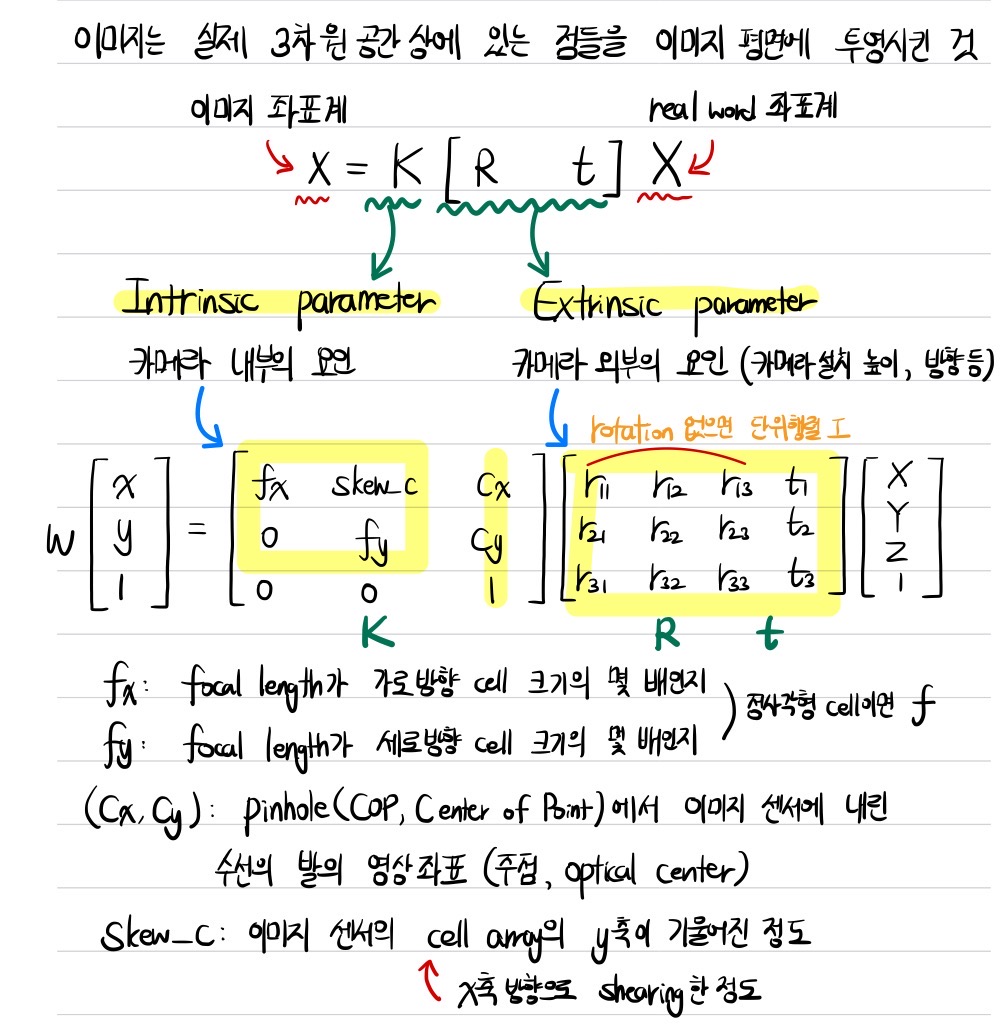 이미지는 실제 3차원 공간 상에 있는 점들을 이미지 평면에 투영시킨 것
이미지 좌표계 real word 좌표계
x = K [ R t ] X
Intrinsic parameter Extrinsic parameter
카메라 내부의 요인 카메라 외부의 요인 (카메라 설치 높이, 방향 등)
rotation 없으면 단위행렬 I
w [ x y 1 ] = [ fx skew_c cx ] [ r11 r12 r13 t1 ] [ X
0 fy cy r21 r22 r23 t2 Y
Z
0 0 1 r31 r32 r33 t3 1 ]
K R t
fx: focal length가 가로방향 cell 크기의 몇 배인지
) 정사각형 cell이면 f
fy: focal length가 세로방향 cell 크기의 몇 배인지
(Cx, Cy): pinhole(COP, Center of Point)에서 이미지 센서에 내린
수선의 발의 영상좌표 (주점, optical center)
skew_c: 이미지 센서의 cell array의 y축이 기울어진 정도
x축 방향으로 shearing한 정도